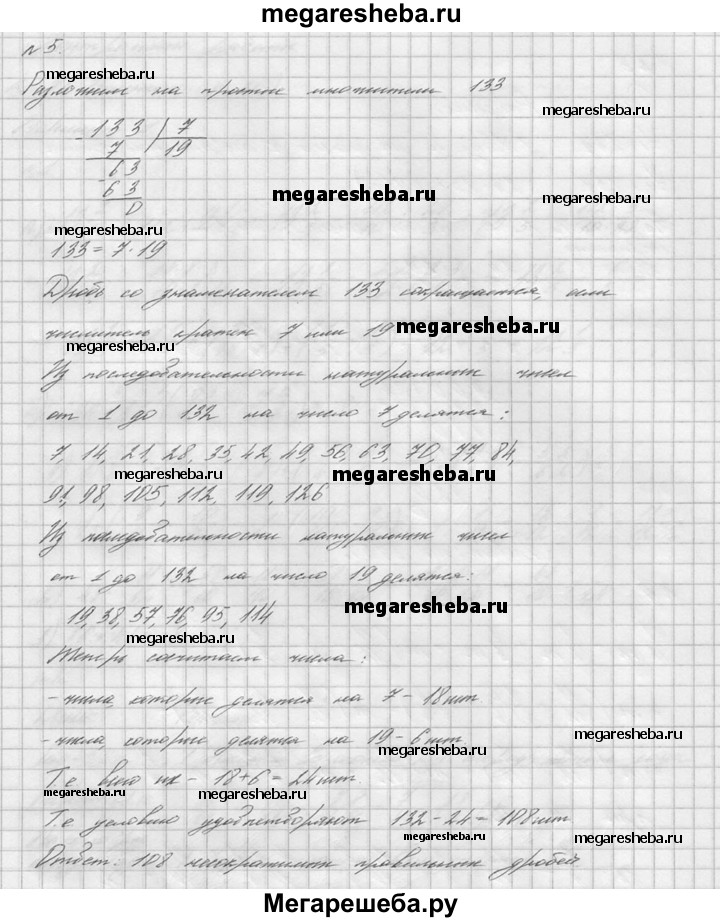 megaresheba.ru
№5.
megaresheba.ru
Разложим на простые множители 133
megaresheba.ru
133 | 7
7 19
63
63
0
megaresheba.ru
megaresheba.ru
megaresheba.ru
133 = 7·19
Дробь со знаменателем 133 сокращается, если
числитель кратен 7 или 19
megaresheba.ru
megaresheba.ru
Из последовательности натуральных чисел
от 1 до 132 на число 7 делятся:
7, 14, 21, 28, 35, 42, 49, 56, 63, 70, 77, 84,
megaresheba.ru
megaresheba.ru
91, 98, 105, 112, 119, 126
Из последовательности натуральных чисел
от 1 до 132 на число 19 делятся:
19, 38, 57, 76, 95, 114
megaresheba.ru
megaresheba.ru
Теперь сосчитаем числа:
- числа, которые делятся на 7 - 18 шт.
- числа, которые делятся на 19 - 6 шт
megaresheba.ru
megaresheba.ru
Т.е всего их - 18+6=24 шт.
megaresheba.ru
megaresheba.ru
Т.е условию удовлетворяют 132-24=108 шт
megaresheba.ru
megaresheba.ru
Ответ: 108 несократимых правильных дробей
Мегарешеба.ру